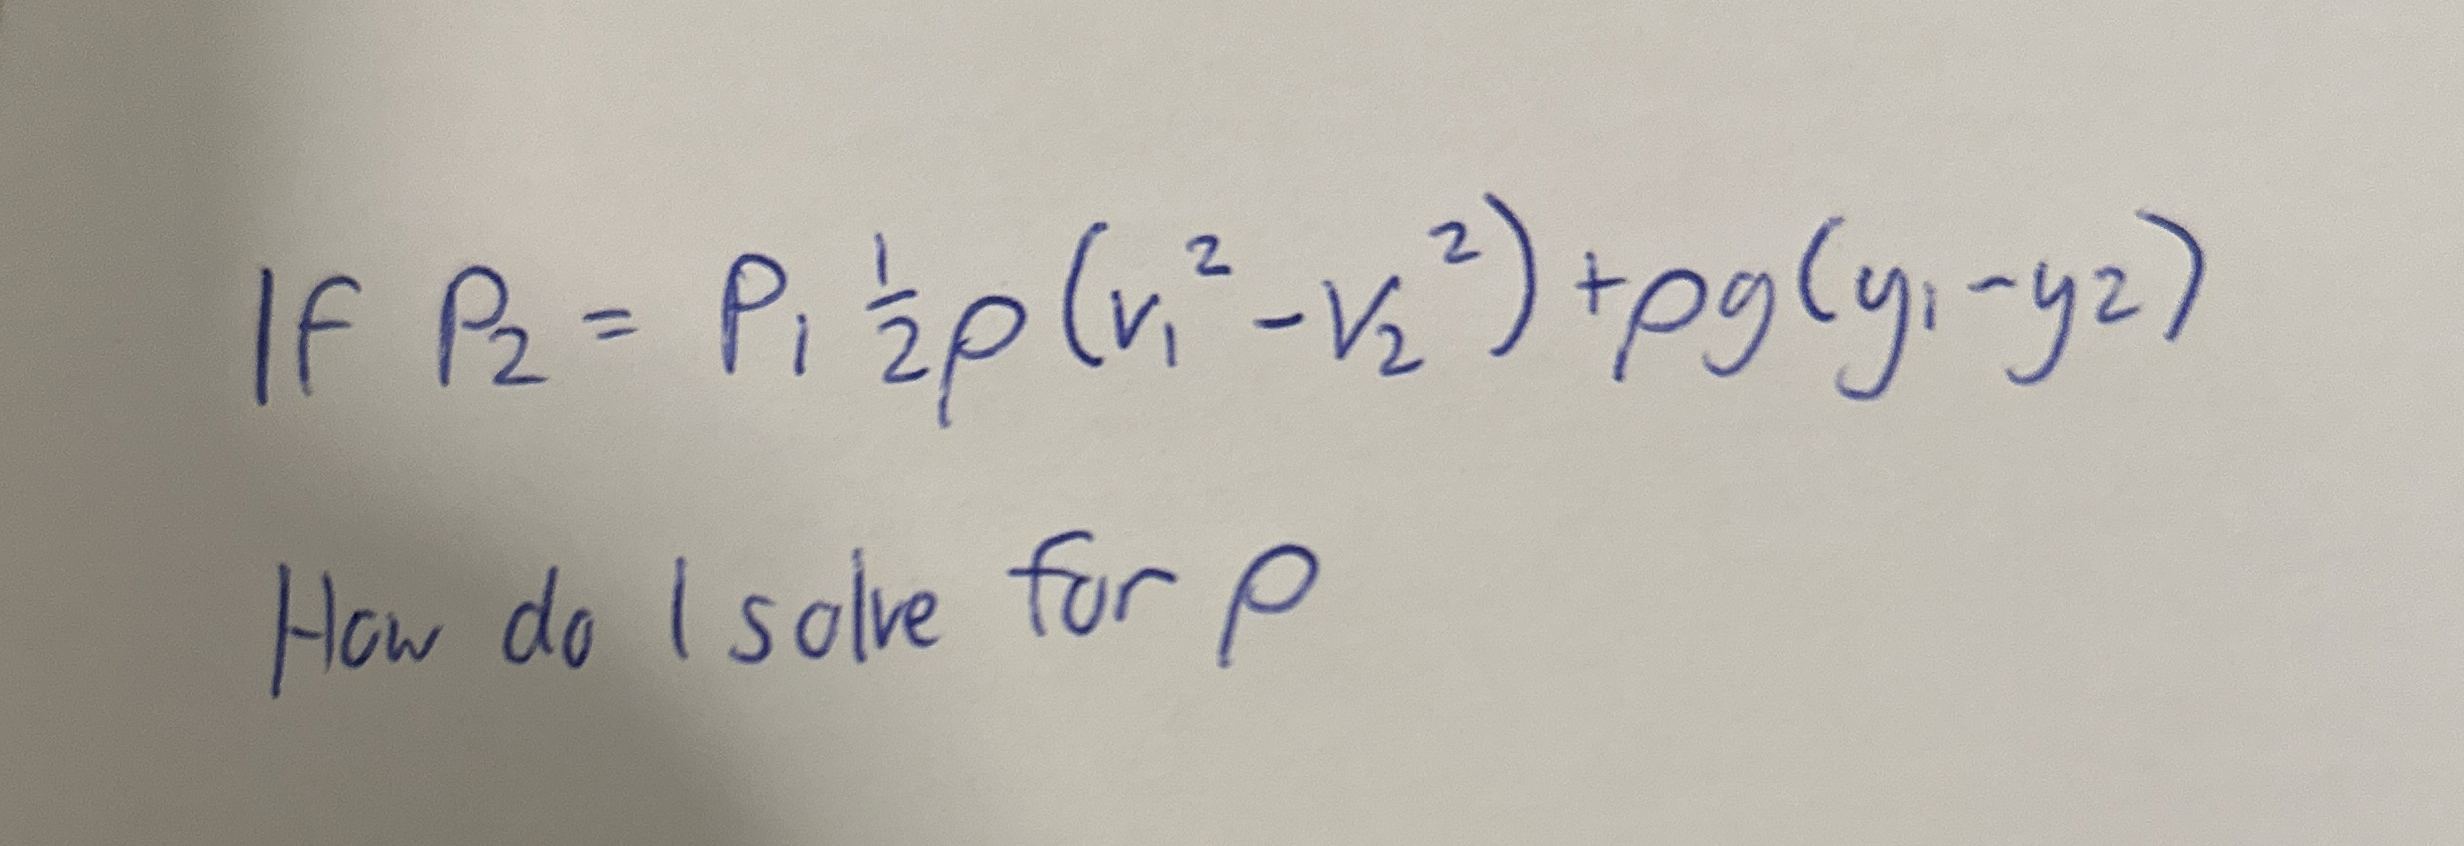 If P₂ = P₁ ½ρ(v₁² - v₂²) + ρg(y₁ - y2)
How do I solve for ρ